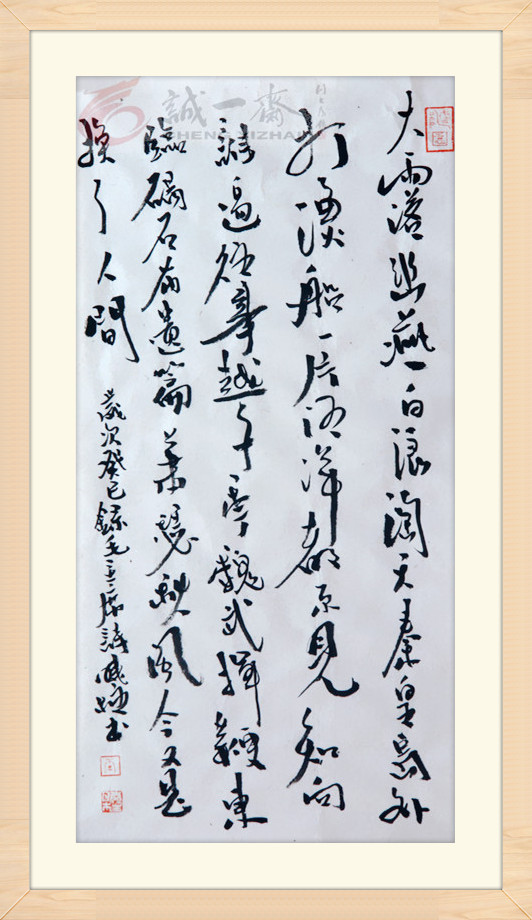 誠一齋
CHENG YIZHAI
大雨落幽燕白浪淘天秦皇島外
打漁船一片汪洋都不見知向
誰邊往事越千年魏武揮鞭東
臨碣石有遺篇蕭瑟秋風今又是
換了人間
歲次癸巳錄毛主席詩書